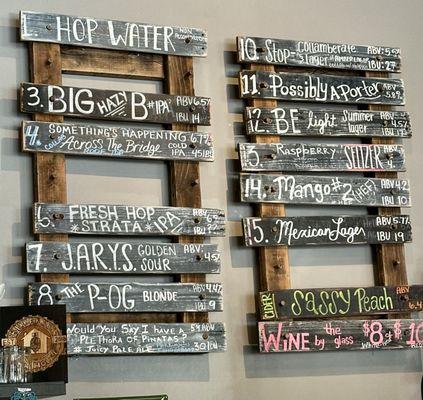 HOP WATER NON ALCOHOLIC
3. BIG HAZY B #IPA ABV 6.5%
IBU 14
4. SOMETHING'S HAPPENING 6.7%
Across The Bridge COLD
IPA 45 IBU
6. FRESH HOP ABV
STRATA IPA
7 JARYS GOLDEN ABV
SOUR 4.5%
8 THE P-OG BLONDE ABV 4.4%
IBU 9
Would You Say I Have A 5%
PLETHORA OF PINATAS? ABV
#Juicy Pale Ale 30 IBU
10. Stop-Collamberate ABV 5.5%
&lager IBU 27
11. Possibly A Porter ABV
5.8%
12 BE light Summer ABV 4.5%
Lager IBU
13. Raspberry SELTZER ABV 5%
14 Mango #2 (HGF) ABV 4.2%
IBU 10
15. Mexican Lager ABV 5.7%
IBU 19
CIDER SASSY Peach ABV
6
WINE by the glass $8 $10
White